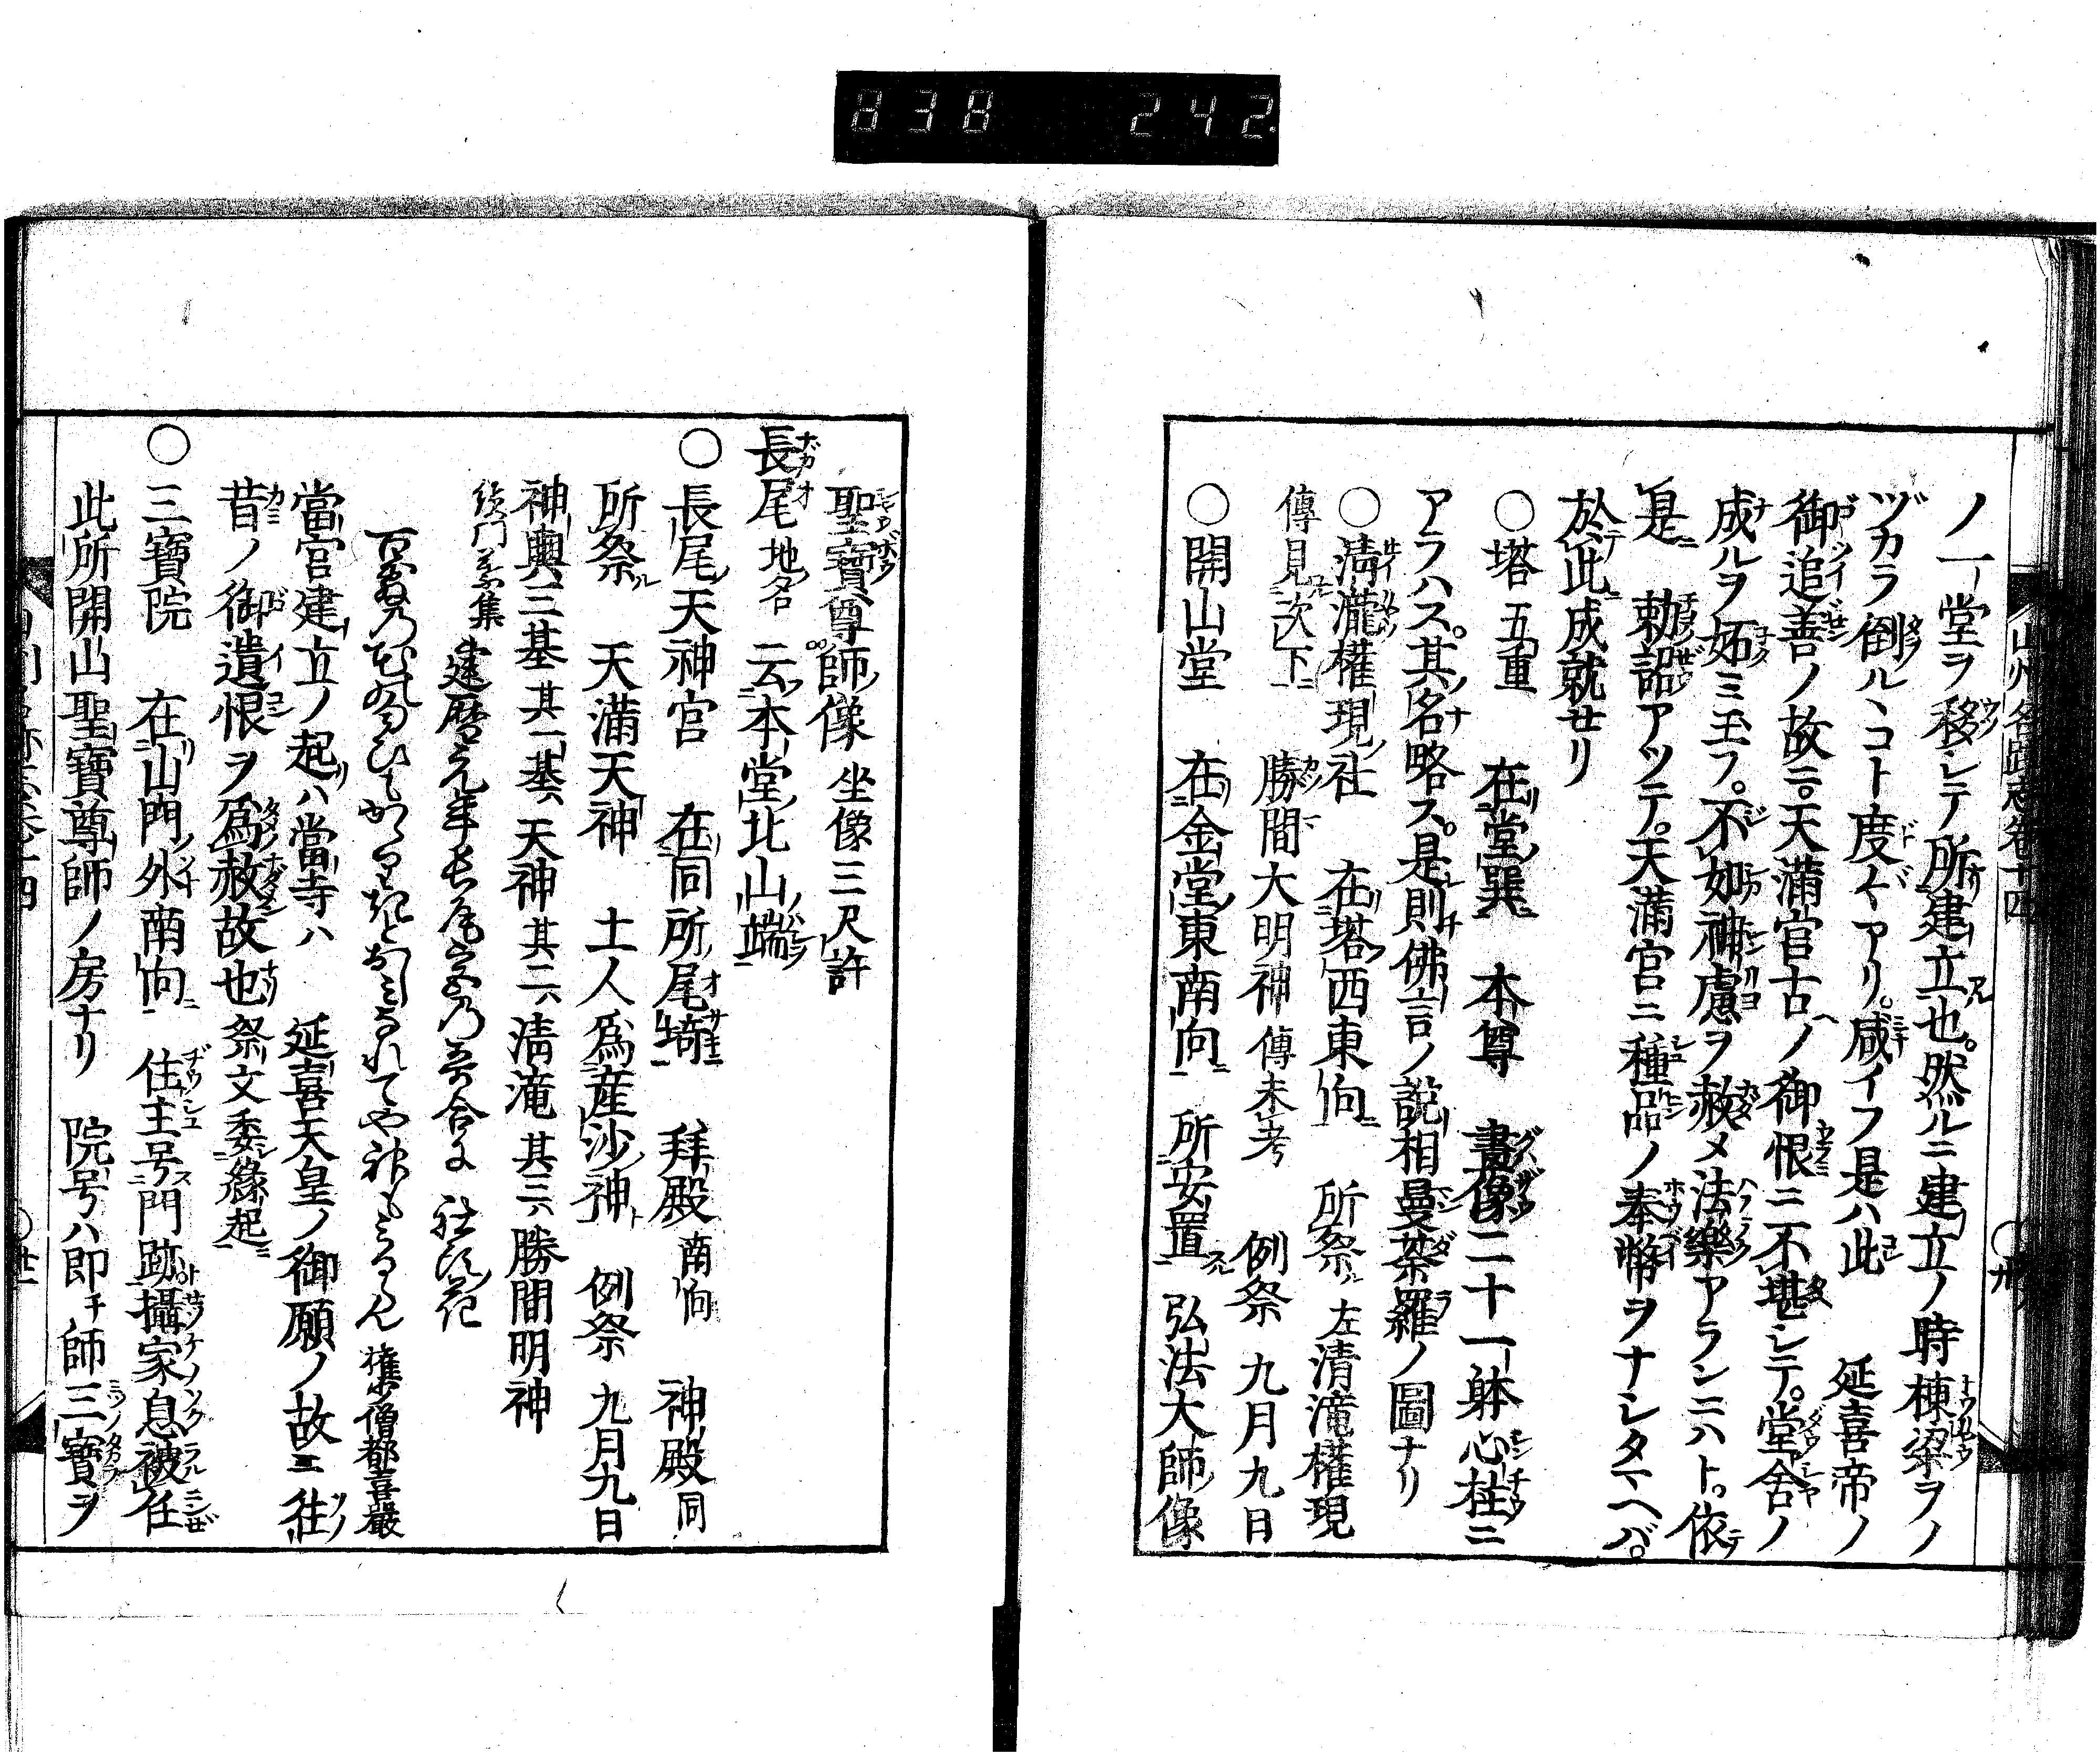 838 242
山州名跡志卷十四
〇卅
ノ一堂ヲ移シテ所建立也。然ルニ建立ノ時棟梁ヲノ
ヅカラ倒ルヽコト度々アリ。咸イフ是ハ此 延喜帝ノ
御追善ノ故ニ。天滿宮古ノ御恨ニ不堪シテ。堂舎ノ
成ルヲ妬ミ玉フ。不如神慮ヲ赦メ法樂アランニハト。依
是 勅詔アツテ。天滿宮ニ種品ノ奉幣ヲナシタマヘバ。
於此成就せリ
〇塔 五重 在堂巽 本尊 畫像二十一躰心柱ニ
アラハス。其名略ス。是則佛言ノ說相曼荼羅ノ圖ナリ
〇淸瀧權現社 在塔西東向 所祭 左清滝權現
傳見次下 勝間大明神 傳未考 例祭 九月九日
〇開山堂 在金堂東南向 所安置 弘法大師像
聖寶尊師像 坐像三尺許
長尾 地名 云本堂北山端
〇長尾天神宮 在同所尾﨑 拜殿 南向 神殿 同
所祭 天滿天神 土人爲産沙神 例祭 九月九日
神輿三基 其一基、天神 其二、淸滝 其三、勝間明神
續門葉集 建暦元年長尾宮乃哥合に 社頭花
權少僧都喜嚴
當宮建立ノ起ハ當寺ハ 延喜天皇ノ御願ノ故ニ往
昔ノ御遺恨ヲ爲赦故也 祭文委緣起
〇三寶院 在山門外南向 住主号門跡攝家息被任
此所開山聖寶尊師ノ房ナリ 院号ハ即チ師三寶ヲ